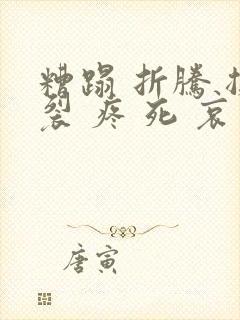 糟蹋 折騰
裂 疼 死 哀
唐寅